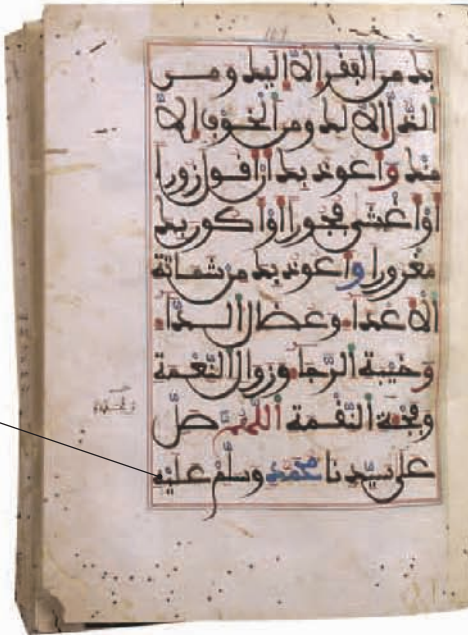 بك من الفقر إلا إليك ومن
الذل إلا لك ومن الخوف إلا
منك وأعوذ بك أن أقول زورا
أو أغشى فجورا أو أكون بك
مغرورا وأعوذ بك من شماتة
الأعداء وعضال الداء
وخيبة الرجاء وزوال النعمة
وفجأة النقمة اللهم صل
على سيدنا محمد وسلم عليه